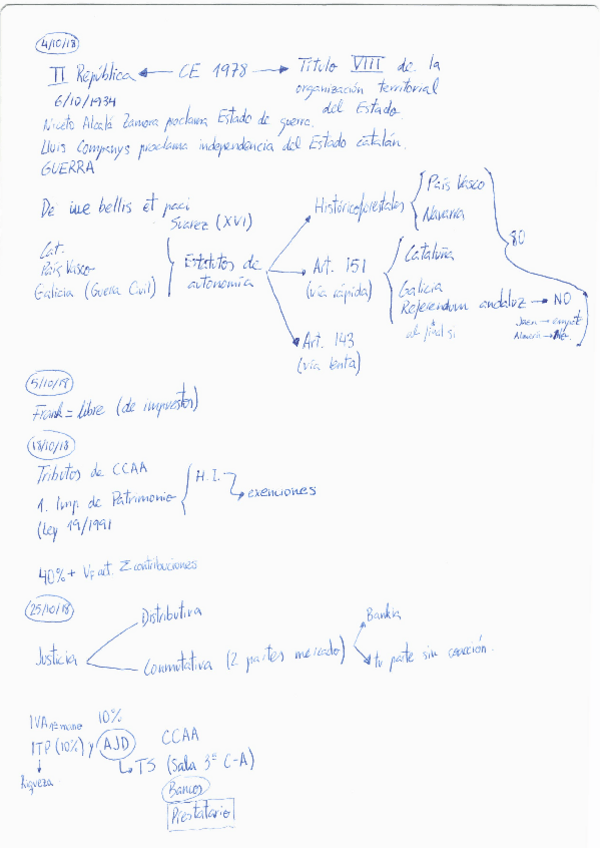 4/10/18
II República ← CE 1978 → Título VIII de la
organización territorial
del Estado
6/10/1934
Niceto Alcalá Zamora proclama Estado de guerra.
Lluis Companys proclama independencia del Estado catalán.
GUERRA
De iure bellis et paci
Suarez (XVI)
Cat.
País Vasco
Galicia (Guerra Civil)
Estatutos de
autonomía
Históricoforestales
País Vasco
Navarra
80
Art. 151
(vía rápida)
Cataluña
Galicia
Referendum andaluz → NO
al final si
Jaén → empate
Almería →
Art. 143
(vía lenta)
5/10/18
Frank = libre (de impuestos)
18/10/18
Tributos de CCAA
1. Imp. de Patrimonio
(Ley 19/1991
H.I.
exenciones
40% + act. Σ contribuciones
25/10/18
Justicia
Distributiva
Conmutativa (2 partes mercado)
Bankia
tu parte sin coacción.
IVA 1ª mano 10%
ITP (10%) y AJD CCAA
Riqueza
TS (Sala 3ª C-A)
Bancos
Prestatario